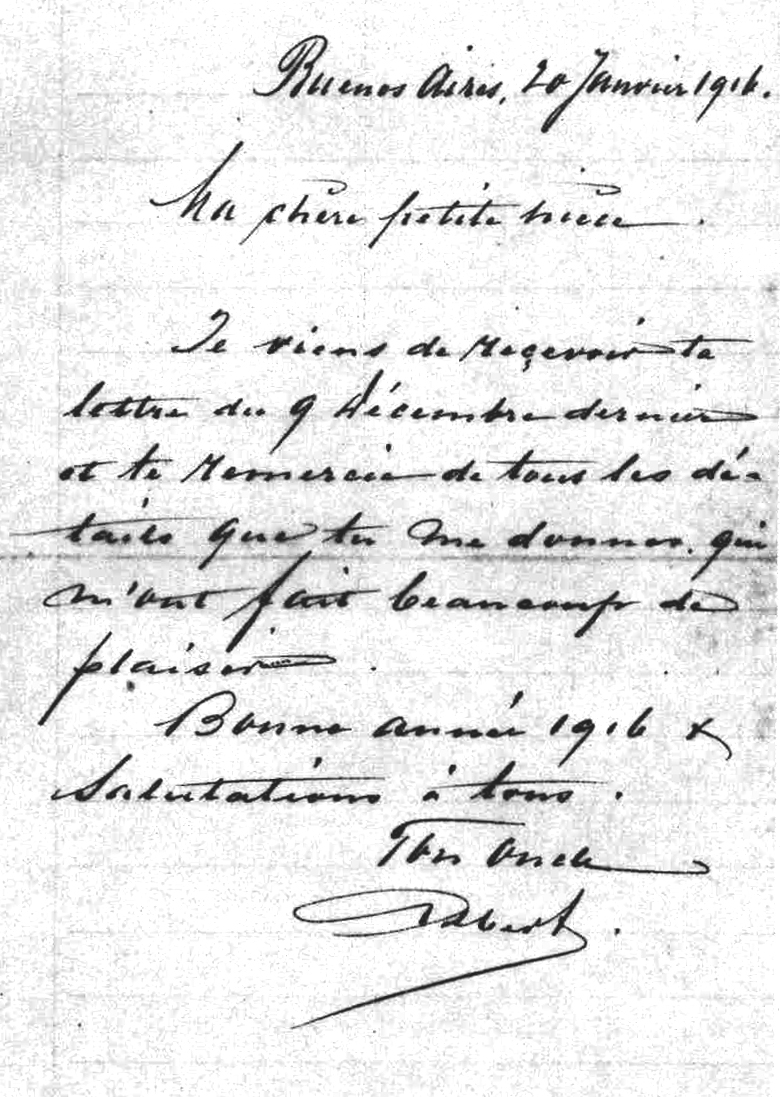 Buenos Aires, 20 Janvier 1916.
Ma chère petite nièce.
Je viens de reçevoir ta
lettre du 9 Décembre dernier
et te remercie de tous les dé-
tails que tu me donnes, qui
m'ont fait beaucoup de
plaisir.
Bonne année 1916 &
Salutations à tous.
Ton Oncle
Robert.